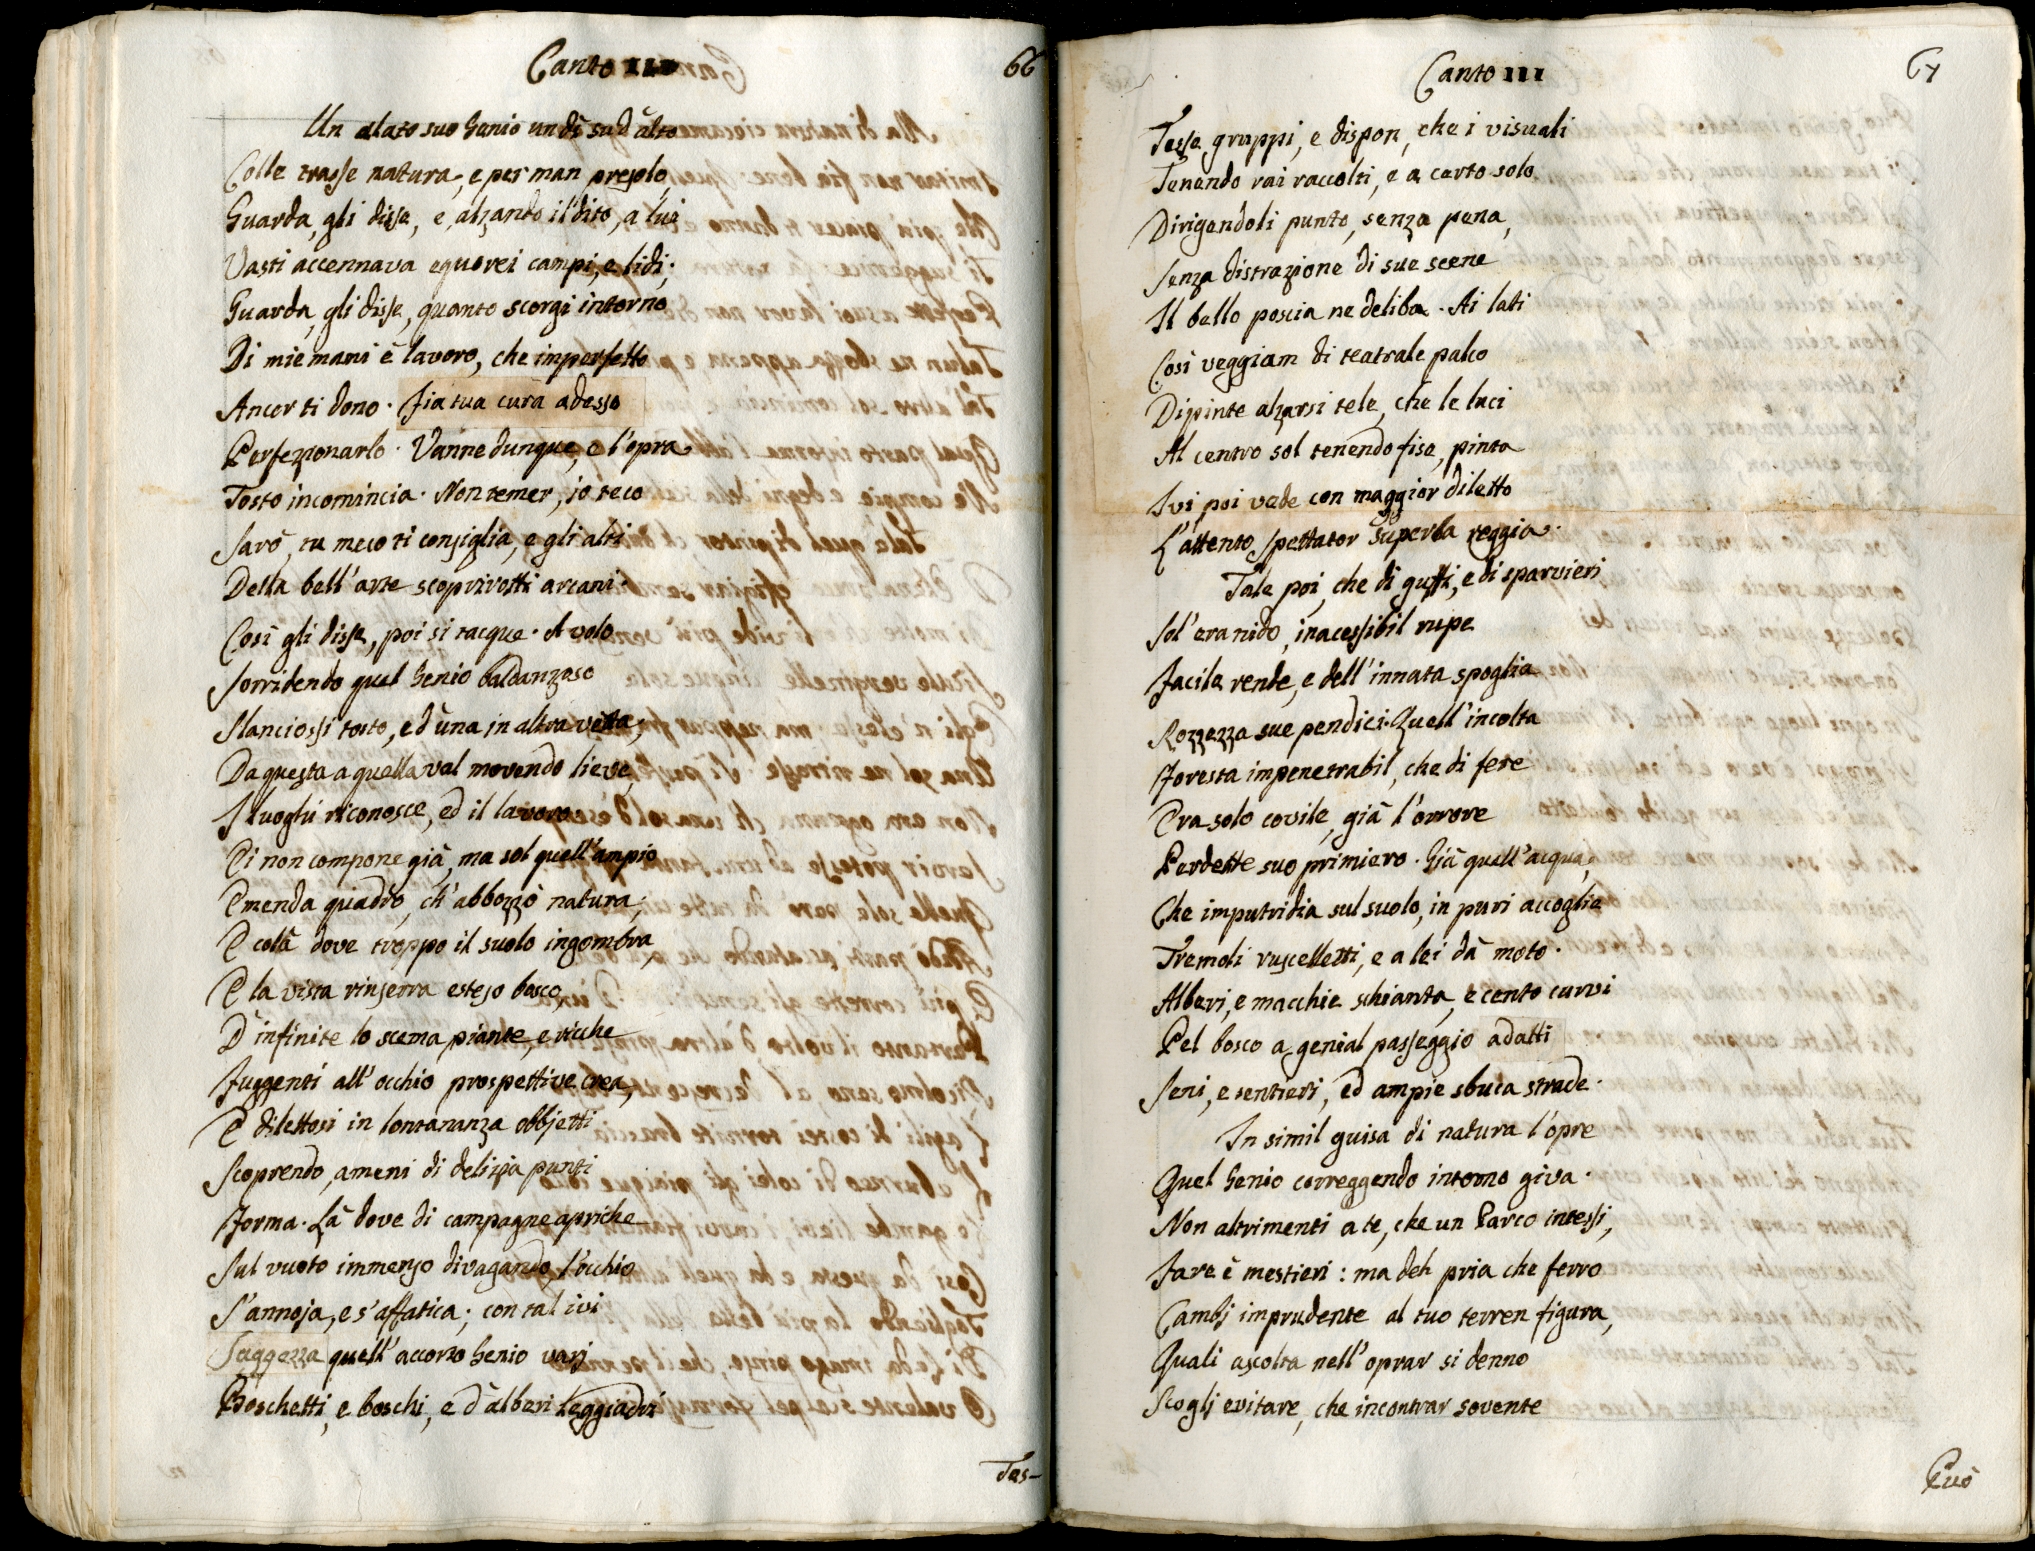 Canto III
66
Un alato suo Genio un dì su d'alto
Colle trasse natura, e per man preslo,
Guarda, gli disse, e alzando il dito, a lui
Vasti accennava equorei campi, e lidi;
Guarda, gli disse, quanto scorgi intorno
Di mie mani è lavoro, che imperfetto
Ancor ti dono. Fia tua cura adesso
Perfezionarlo. Vanne dunque, e l'opra
Tosto incomincia. Non temer, io teco
Sarò, tu meco ti consiglia, e gli alti
Della bell'arte scoprirotti arcani.
Così gli disse, poi si tacque. A volo
Sorridendo quel Genio baldanzoso
Slanciossi tosto, e d'una in altra vetta,
Da questa a quella val movendo lieve,
I luoghi riconosce, ed il lavoro
Ei non compone già, ma sol quell'ampio
Emenda quadro, ch'abbozzò natura;
E colà dove troppo il suolo ingombra,
E la vista rinserra esteso bosco,
D'infinite lo scema piante, e ricche
Fuggenti all'occhio prospettive crea,
E dilettosi in lontananza obbjetti
Scoprendo, ameni di delizia punti
Forma. Là dove di campagne apriche
Sul vuoto immenso divagando l'occhio
S'annoja, e s'affatica; con tal ivi
Saggezza quell'accorto Genio varj
Boschetti, e boschi, e d'alberi leggiadri
Tes-
Canto III
67
Tesse gruppi, e dispon, che i visuali
Tenendo rai raccolti, e a certo solo
Dirigendoli punto, senza pena,
Senza distrazione di sue scene
Il bello poscia ne deliba. Ai lati
Così veggiam di teatrale palco
Dipinte alzarsi tele, che le luci
Al centro sol tenendo fise, pinta
Ivi poi vede con maggior diletto
L'attento spettator superba reggia.
Tale poi, che di guffi, e di sparvieri
Sol'era nido, inacessibil rupe
Facile rende, e dell'innata spoglia
Rozzezza sue pendici. Quell'incolta
Foresta impenetrabil, che di fere
Era solo covile, già l'orrore
Perdette suo primiero. Già quell'acqua,
Che imputridia sul suolo, in puri accoglie
Tremoli ruscelletti, e a lei dà moto.
Alberi, e macchie schianta, e cento curvi
Pel bosco a genial passeggio adatti
Seni, e sentieri, ed ampie sbuca strade.
In simil guisa di natura l'opre
Quel Genio correggendo intorno giva.
Non altrimenti a te, che un Parco intessi,
Fare è mestieri: ma deh pria che ferro
Cambj imprudente al tuo terren figura,
Quali ascolta nell'oprar si denno
Scoglj evitare, che incontrar sovente
Può